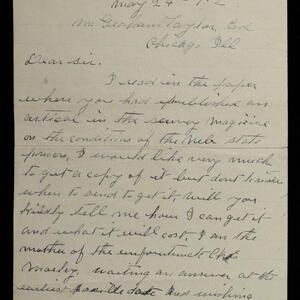 May 24
Mr Graham Taylor, Ed
Chicago Ill
Dear sir.
I read in the paper
where you had published an
artical in the survey magazine
on the conditions of the Neb state
prison, I would like very much
to get a copy of it but dont know
where to send to get it, will you
kindly tell me how I can get it
and what it will cost, I am the
mother of the
Morley, waiting an answer at the
earliest possible date and wishing